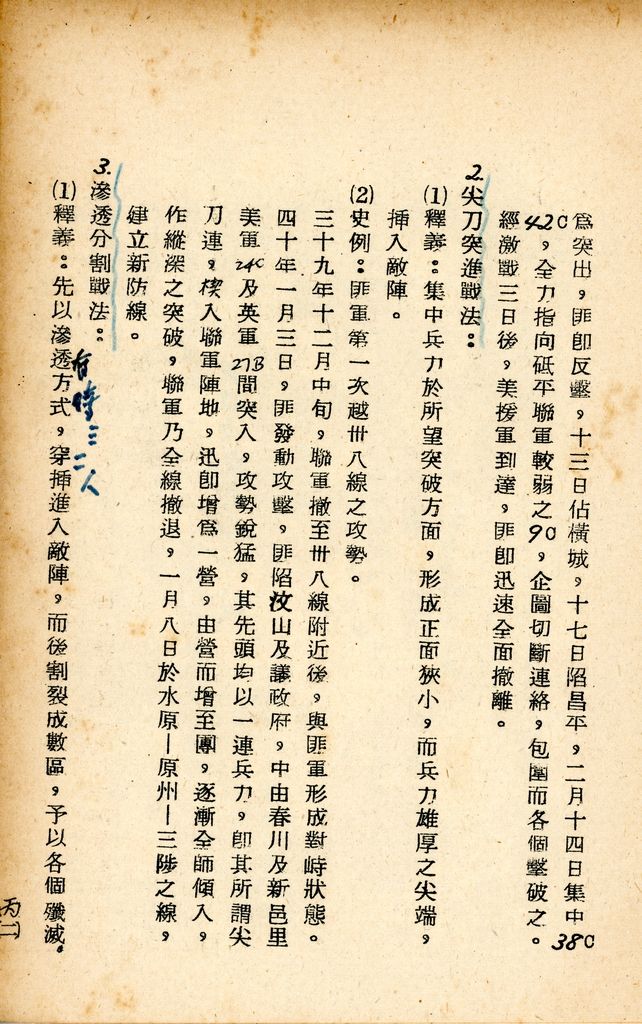 爲突出，匪卽反擊，十三日佔橫城，十七日陷昌平，二月十四日集中38C
42C，全力指向砥平聯軍較弱之9C，企圖切斷連絡，包圍而各個擊破之。
經激戰三日後，美援軍到達，匪卽迅速全面撤離。
2.尖刀突進戰法：
(1)釋義：集中兵力於所望突破方面，形成正面狹小，而兵力雄厚之尖端，
挿入敵陣。
(2)史例：匪軍第一次越卅八線之攻勢。
三十九年十二月中旬，聯軍撤至卅八線附近後，與匪軍形成對峙狀態。
四十年一月三日，匪發動攻擊，匪陷汶山及議政府，中由春川及新邑里
美軍24C及英軍27B間突入，攻勢銳猛，其先頭均以一連兵力，卽其所謂尖
刀連，楔入聯軍陣地，迅卽增爲一營，由營而增至團，逐漸全師傾入，
作縱深之突破，聯軍乃全線撤退，一月八日於水原—原州—三陟之線，
建立新防線。
3.滲透分割戰法：
有時三二人
(1)釋義：先以滲透方式，穿挿進入敵陣，而後割裂成數區，予以各個殲滅。
丙(二)